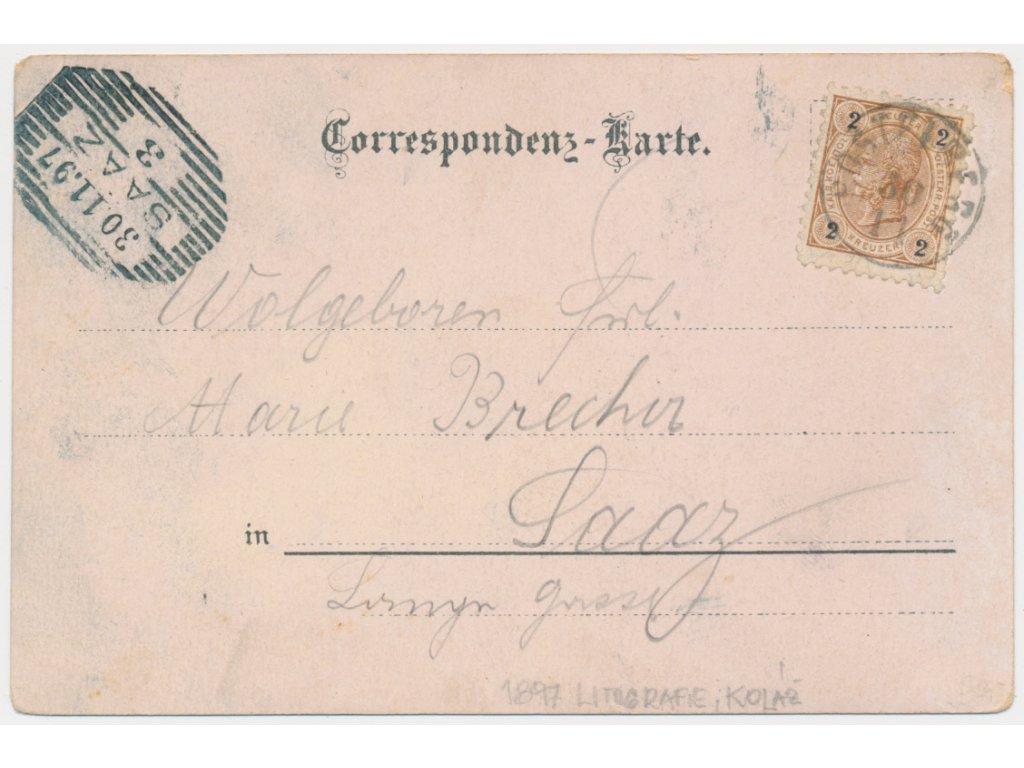 Correspondenz-Karte.
2 KREUZER 2
KAIS. KÖNIGL. OESTERR. POST
2 KREUZER 2
30.11.97
SAAZ
3
Wolgeboren Frl.
Marie Brecher
in Saaz
Lange gasse
1897 LITOGRAFIE, KOLÁŽ